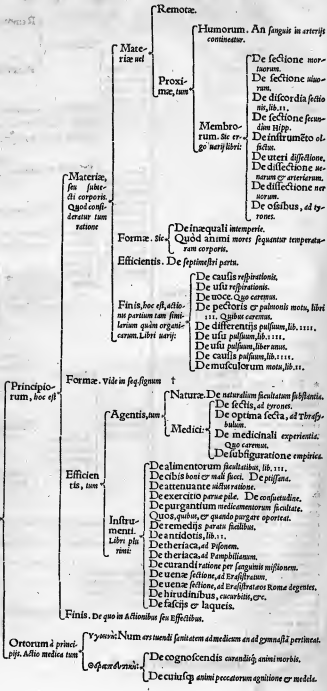 Remotæ.
Humorum. An sanguis in arterijs
contineatur.
Mate-
riæ uel
Proxi-
mæ, tum
De sectione mor-
tuorum.
De sectione uiuo-
rum.
De discordia sectio
nis, lib. 11.
De sectione secun-
dùm Hipp.
Membro-
rum. Sic er-
go uarij libri:
De instrumēto ol-
factus.
De uteri dissectione.
De dissectione ue-
narum & arteriarum.
De dissectione ner
uorum.
De ossibus, ad ty-
rones.
Materiæ,
seu subie-
cti corporis.
Quod consi-
deratur tum
ratione
Formæ. Sic
De inæquali intemperie.
Quòd animi mores sequantur temperatu-
ram corporis.
Efficientis. De septimestri partu.
Finis, hoc est, actio-
nus partium tam simi-
larium quàm organi-
carum. Libri uarij:
De causis respirationis.
De usu respirationis.
De uoce. Quo caremus.
De pectoris & pulmonis motu, libri
III. Quibus caremus.
De differentijs pulsuum, lib. IIII.
De usu pulsuum, lib. IIII.
De usu pulsuum, liber unus.
De causis pulsuum, lib. IIII.
De musculorum motu, lib. II.
Principio-
rum, hoc est
Formæ. Vide in seq. signum †
Efficien
tis, tum
Agentis, tum
Naturæ. De naturalium facultatum substantia.
Medici:
De sectis, ad tyrones.
De optima secta, ad Thrasy-
bulum.
De medicinali experientia.
Quo caremus.
De subfiguratione empirica.
Instru-
menti.
Libri plu
rimi:
De alimentorum facultatibus, lib. III.
De cibis boni & mali succi. De ptissana.
De attenuante uictus ratione.
De exercitio paruæ pilæ. De consuetudine.
De purgantium medicamentorum facultate.
Quos, quibus, & quando purgare oporteat.
De remedijs paratu facilibus.
De antidotis, lib. II.
De theriaca, ad Pisonem.
De theriaca, ad Pamphilianum.
De curandi ratione per sanguinis missionem.
De uenæ sectione, ad Erasistratum.
De uenæ sectione, ad Erasistrataeos Romæ degentes.
De hirudinibus, cucurbitis, &c.
De fascijs & laqueis.
Finis. De quo in Actionibus seu Effectibus.
Ortorum à princi-
pijs. Actio medica tum
Num ars tuendi sanitatem ad medicum an ad gymnastā pertineat.
De cognoscendis curandisq́; animi morbis.
De cuiusq́; animi peccatorum agnitione & medela.